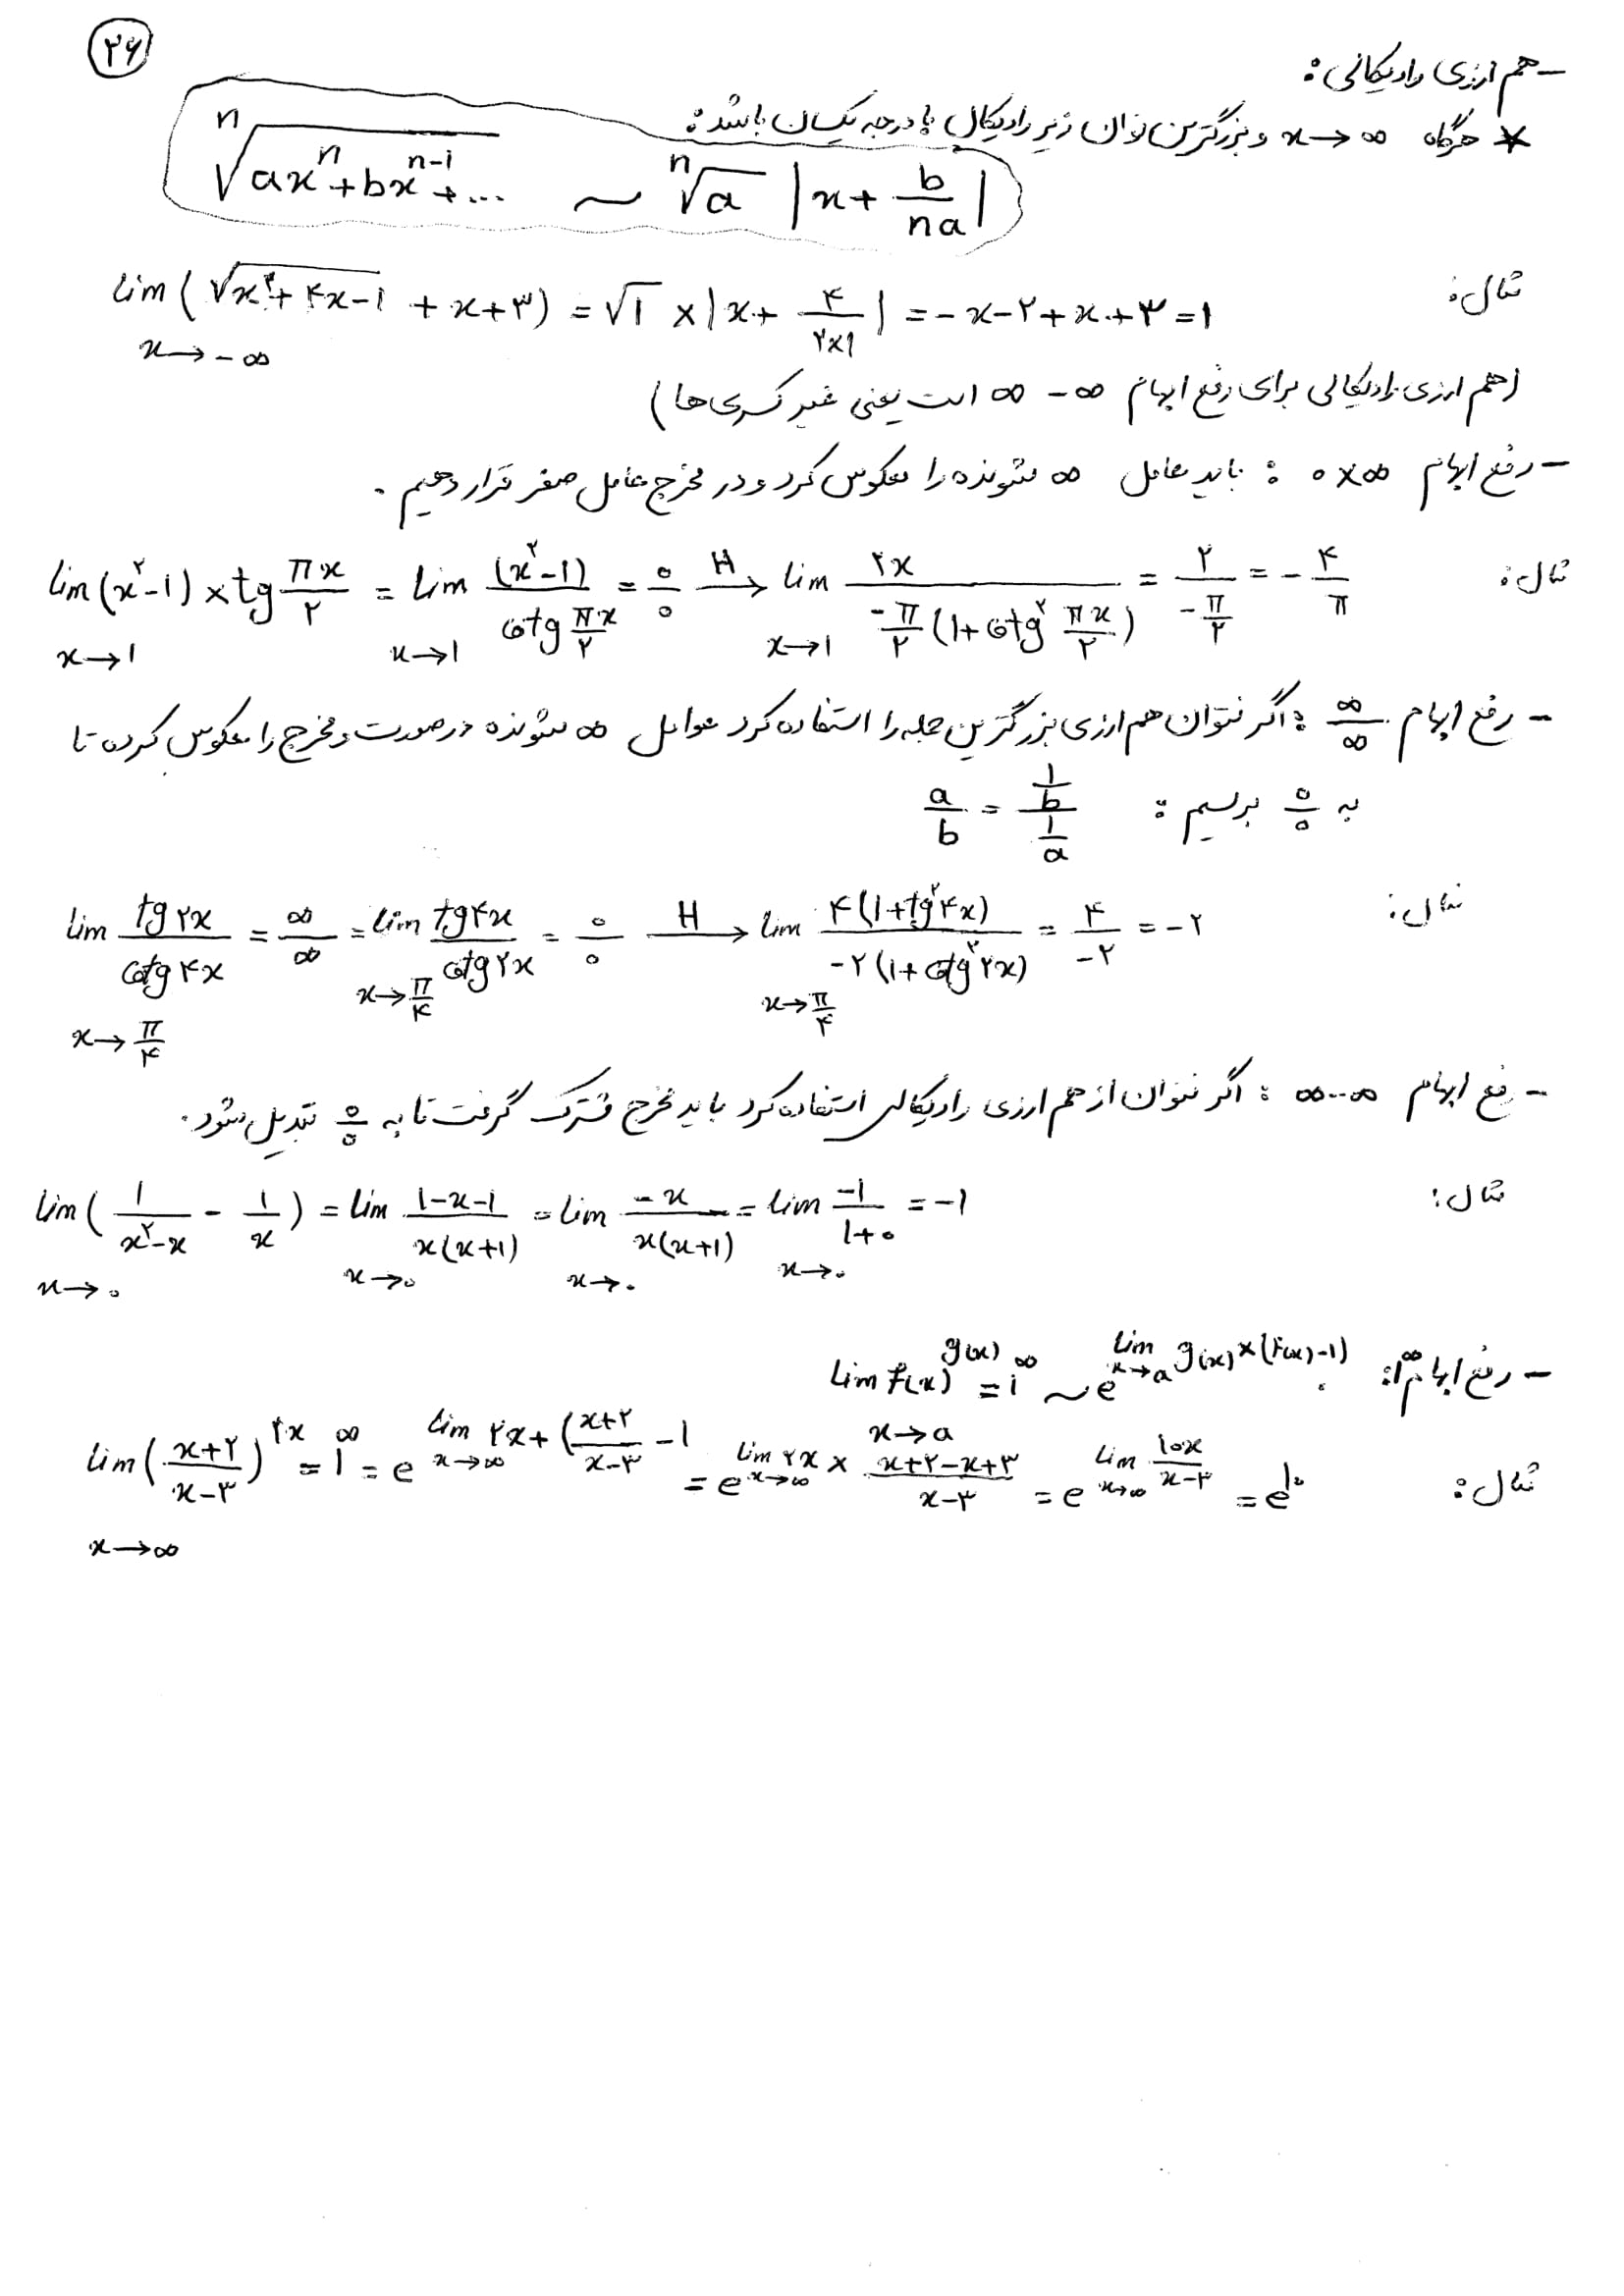 ۲۶
- هم ارزی رادیکالی :
* هرگاه x→∞ و بزرگترین توان زیر رادیکال با درجه یکسان باشد :
ⁿ√(axⁿ+bxⁿ⁻¹+...) ~ ⁿ√a |x + b/na|
مثال : lim (√(x²+۴x-1) + x+۳) = √1 × |x + ۴/۲×1| = -x-۲+x+۳=1
x→-∞
(هم ارزی رادیکالی برای رفع ابهام ∞-∞ است یعنی غیر کسری ها)
- رفع ابهام ۰×∞ : باید عامل ∞ شونده را معکوس کرد و در مخرج عامل صفر قرار دهیم .
مثال : lim (x²-1) × tg πx/۲ = lim (x²-1)/cotg πx/۲ = ۰/۰ H→ lim ۲x / -π/۲ (1+cotg² πx/۲) = ۲ / -π/۲ = - ۴/π
x→1 x→1 x→1
- رفع ابهام ∞/∞ : اگر نتوان هم ارزی بزرگترین جمله را استفاده کرد عوامل ∞ شونده در صورت و مخرج را معکوس کرده تا
به ۰/۰ برسیم : a/b = (1/b)/(1/a)
مثال : lim tg ۲x / cotg ۴x = ∞/∞ = lim tg ۴x / cotg ۲x = ۰/۰ H→ lim ۴(1+tg² ۴x) / -۲(1+cotg² ۲x) = ۴/-۲ = -۲
x→π/۴ x→π/۴ x→π/۴
- رفع ابهام ∞-∞ : اگر نتوان از هم ارزی رادیکالی استفاده کرد باید مخرج مشترک گرفت تا به ۰/۰ تبدیل شود .
مثال : lim (1/(x²-x) - 1/x) = lim (1-x-1)/x(x+1) = lim -x/x(x+1) = lim -1/1+۰ = -1
x→۰ x→۰ x→۰ x→۰
- رفع ابهام 1^∞ : lim f(x)^g(x) = 1^∞ ~ e^(lim x→a g(x)×(f(x)-1))
x→a
مثال : lim ((x+۲)/(x-۳))^۲x = 1^∞ = e^(lim x→∞ ۲x+((x+۲)/(x-۳) -1) = e^(lim x→∞ ۲x × (x+۲-x+۳)/(x-۳)) = e^(lim x→∞ 1۰x/(x-۳)) = e^1۰
x→∞